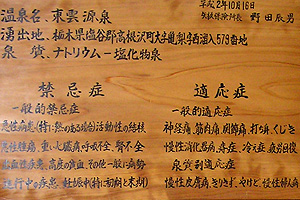 温泉名、東雲源泉
平成2年10月16日
矢板保健所長 野田辰男
湧出地、栃木県塩谷郡高根沢町大字亀梨字西沼入579番地
泉質、ナトリウム−塩化物泉
禁忌症 適応症
一般的禁忌症 一般的適応症
急性病患(特に熱のある場合)活動性の結核 神経痛、筋肉痛、関節痛、打ち身、くじき
悪性腫瘍、重い心臓病、呼吸不全、腎不全 慢性消化器病、痔症、冷え症、疲労回復
出血性疾患、高度の貧血、その他一般に病勢 泉質別適応症
進行中の疾患、妊娠中(特に初期と末期) 慢性皮膚病、きりきず、やけど、慢性婦人病